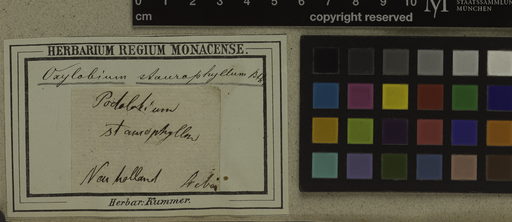 0 1 2 3 4 5 6 7 8 9 10
cm
copyright reserved
M STAATSSAMMLUNG
MÜNCHEN
HERBARIUM REGIUM MONACENSE.
Oxylobium staurophyllum Bth
Podolobium
staurophyllum
Neu holland
Herbar. Kummer.